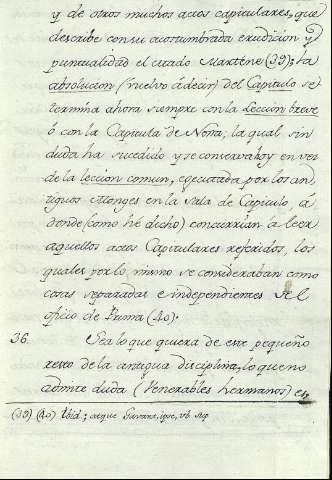 y de otros muchos actos capitulares, que
describe con su acostumbrada erudicion y
puntualidad el citado Martène (39); la
absolucion (vuelvo á decir) del Capitulo se
termina ahora siempre con la Leccion breve
ó con la Capitula de Nona; la qual sin
duda ha sucedido y se conserva hoy en vez
de la leccion comun, egecutada por los an,
tiguos Monges en la Sala de Capitulo, á
donde (como hé dicho) concurrian á leer
aquellos actos Capitulares referidos, los
quales por lo mismo se consideraban como
cosas separadas e independientes del
oficio de Prima (40).
36. Sea lo que quiera de este pequeño
resto de la antigua disciplina, lo que no
admite duda (Venerables hermanos) es,
(39) (40) Ibid; atque Gavant, ipse, vb sup